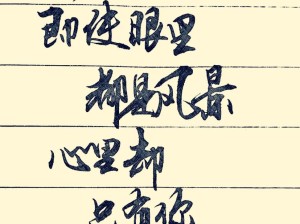 即使眼里
都是风景
心里却
只有你